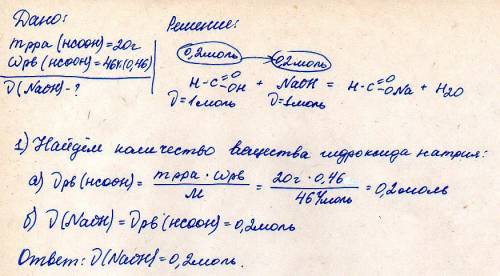 Дано:
mрра (нсоон) = 20г
ωрв (нсоон) = 46% (0,46)
ν (NaOH) - ?
Решение:
0,2моль → 0,2моль
H-C=O OH + NaOH = H-C=O ONa + H2O
ν=1моль ν=1моль
1) Найдём количество вещества гидроксида натрия:
а) νрв (нсоон) = mрра · ωрв / M = 20г · 0,46 / 46г/моль = 0,2моль
б) ν (NaOH) = νрв (нсоон) = 0,2моль
Ответ: ν (NaOH) = 0,2моль.